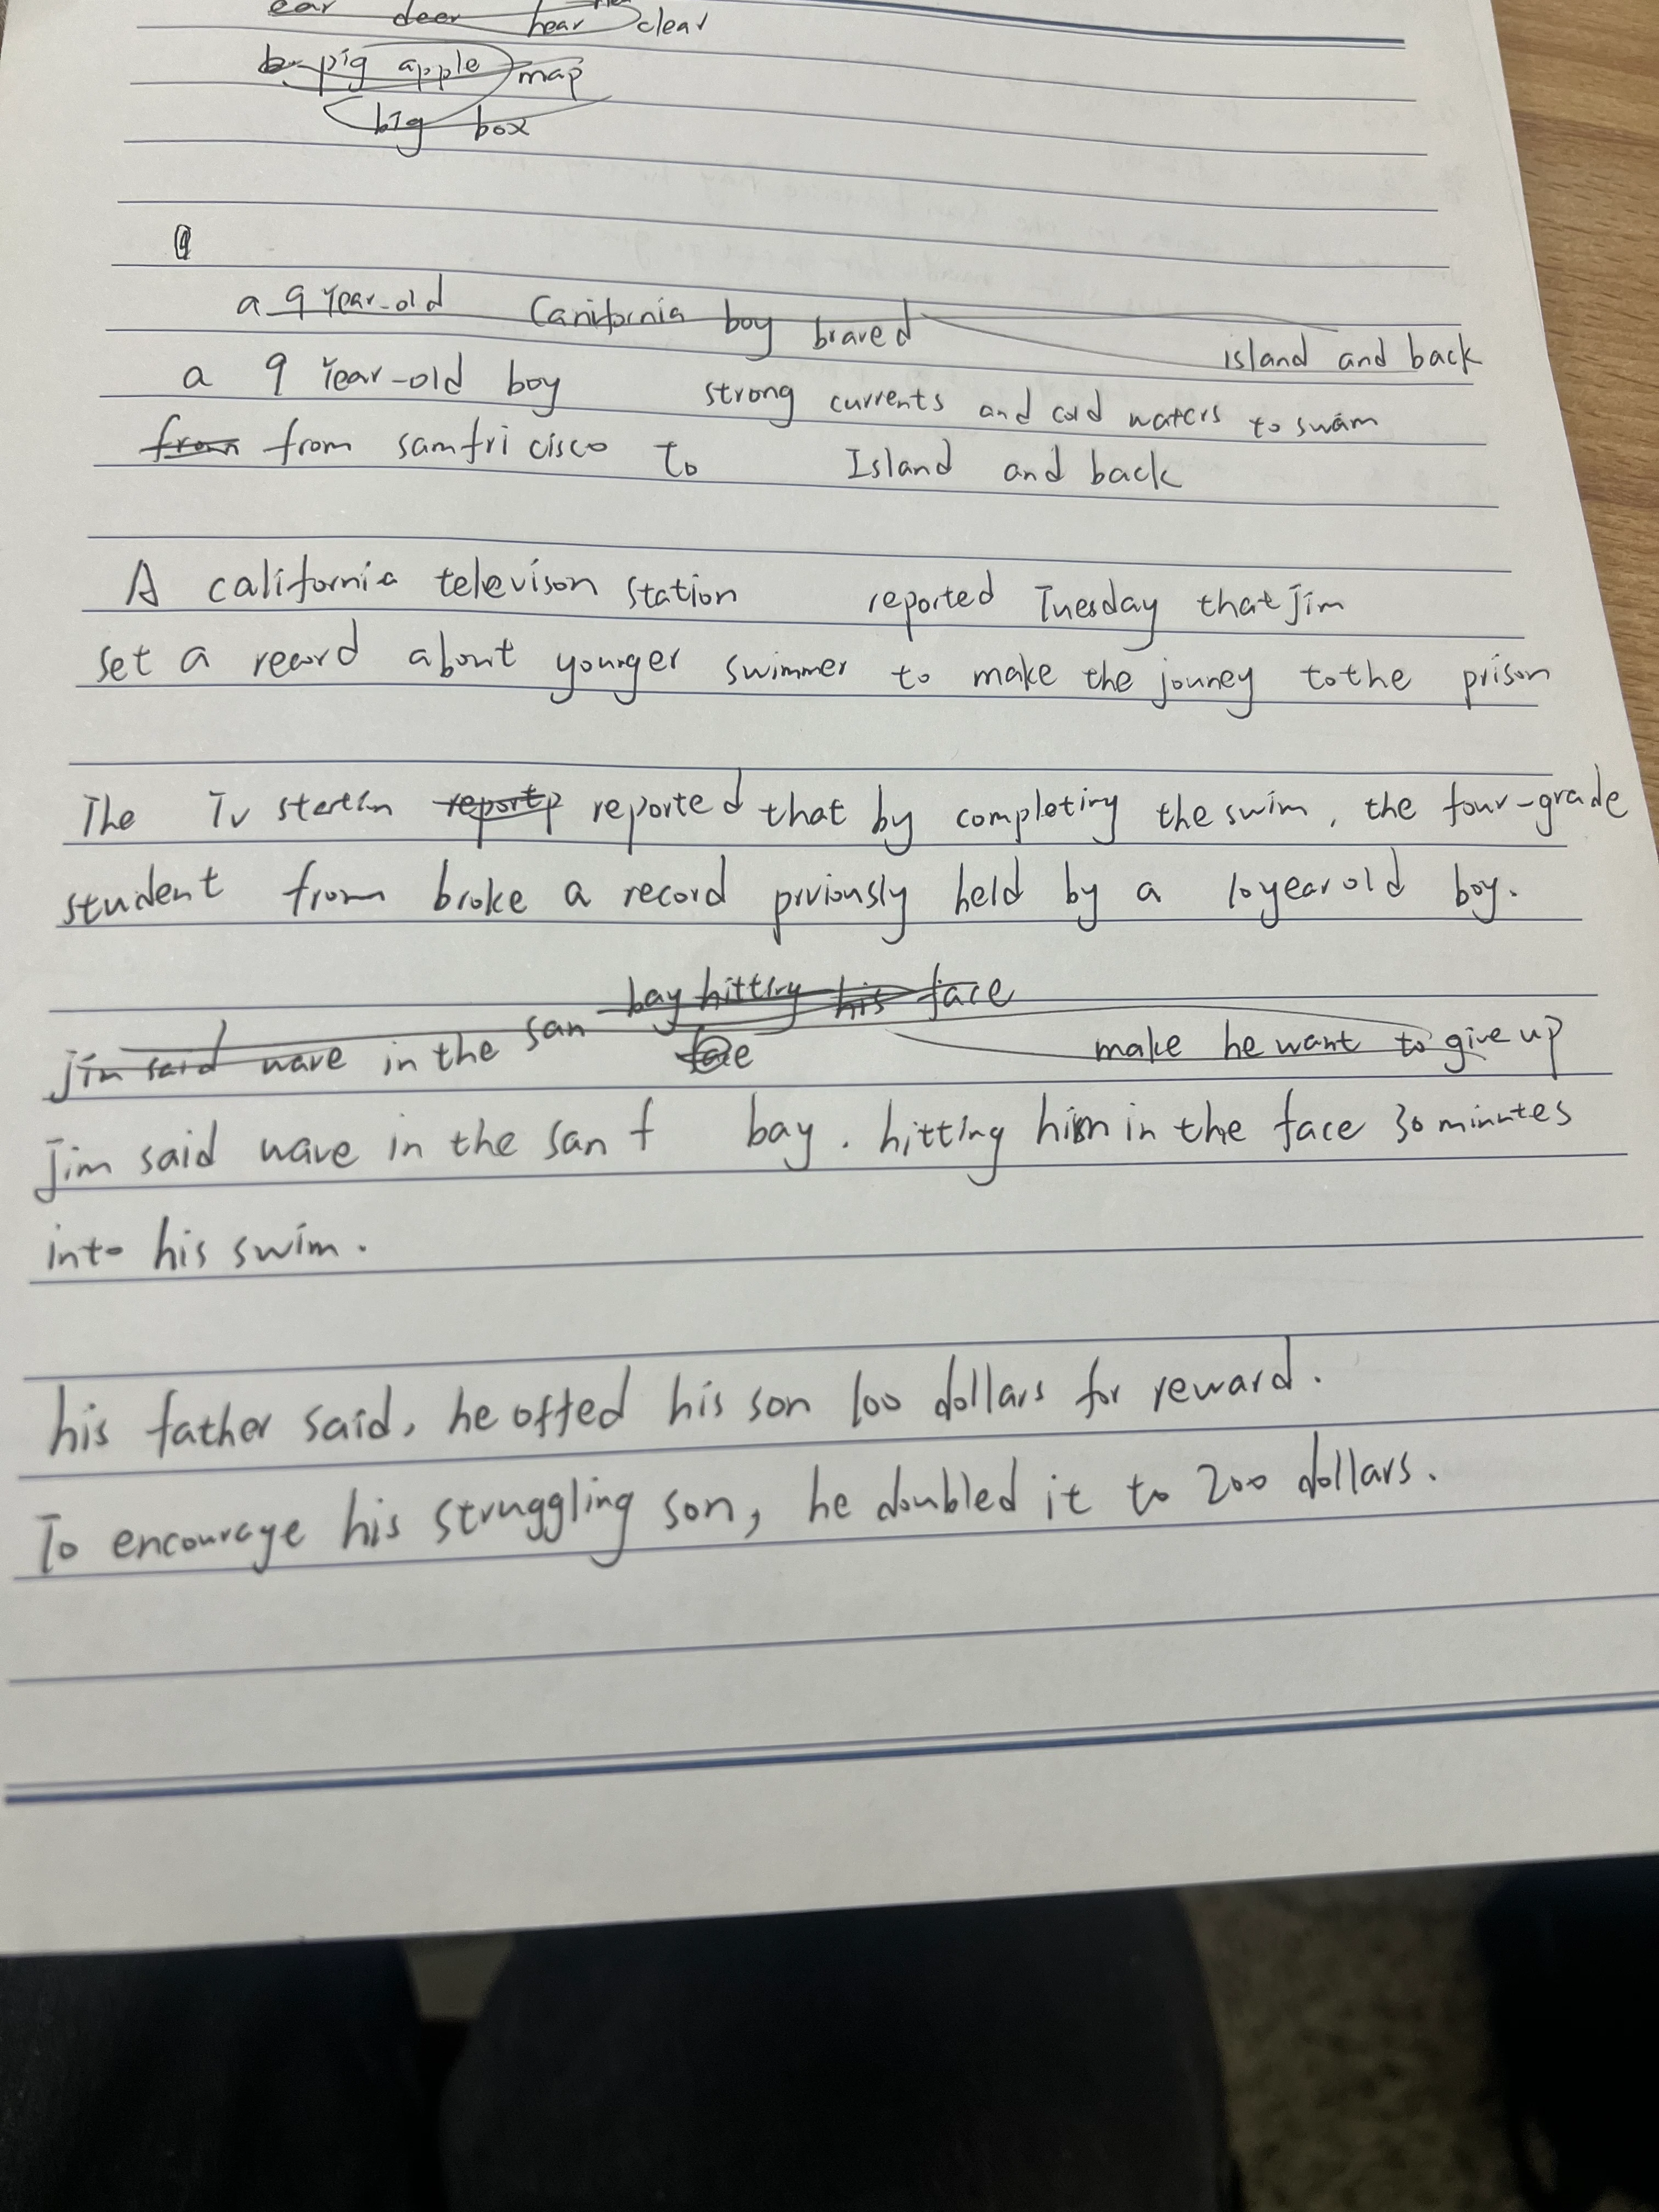 ear deer hear clear
pig apple map
big box
a 9 Year-old Canifornia boy braved island and back
a 9 Year-old boy strong currents and cold waters to swim
from from samfri cisco to Island and back
A california televison station reported Tuesday that Jim
set a record about younger swimmer to make the jouney to the prison
The Tv reported that by completing the swim, the four-grade
student from broke a record prviously held by a 10 year old boy.
bay hitting his face
Jim said wave in the san face make he want to give up
Jim said wave in the san f bay. hitting him in the face 30 minutes
into his swim.
his father said, he offed his son 100 dollars for reward.
To encourage his struggling son, he doubled it to 200 dollars.